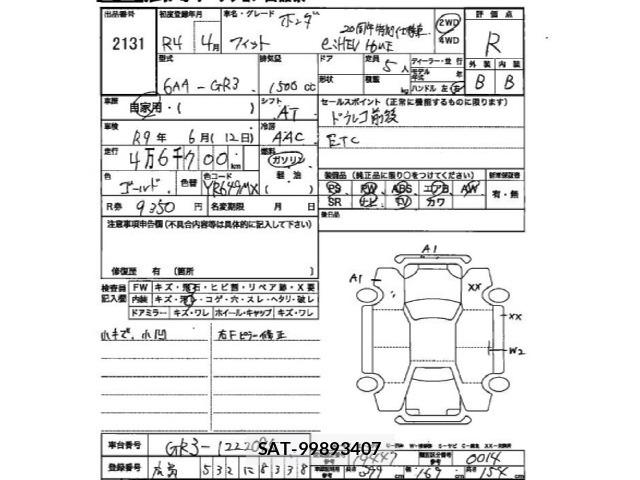 出品番号 初度登録年月 車名・グレード ホンダ 20周年特別仕様車 2WD 4WD 評価点
2131 R4年 4月 フィット e:HEV HOME R
型式 排気量 ドア 定員 5人 ディーラー・並行 外装 内装
6AA-GR3 1500cc 形状 積載 kg モデル年式 年 ハンドル 左 右 B B
車歴 自家用・( ) シフト AT セールスポイント (正常に機能するものに限ります)
車検 R9年 6月(12日) 冷房 AAC ドラレコ前後
走行 4万6千700km 燃料 ガソリン 軽油 ( ) ETC
色 ゴールド 色替 色コード YR649MX
装備品 (純正品に限り○をつけてください) 新車保証書
PS PW ABS エアB AW 有・無
SR ナビ TV カワ
R券 9350円 名変期限 月 日 後日品
注意事項申告欄(不具合内容等は具体的に記入して下さい)
修復歴 有 (箇所 )
検査員記入欄 FW キズ・飛石・ヒビ割・リペア跡・X要
内装 キズ・汚れ・コゲ・穴・スレ・ヘタリ・破レ
ドアミラー キズ・ワレ ホイール・キャップ キズ・ワレ
小キズ、小凹 右Fピラー修正
A1
A1 XX
XX
W2
車台番号 GR3-1222
SAT-99893407
19447 0014
登録番号 広島 532 に 8338 長さ 399cm 幅 169cm 高さ 154cm